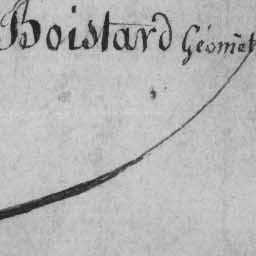 Boistard Géomèt